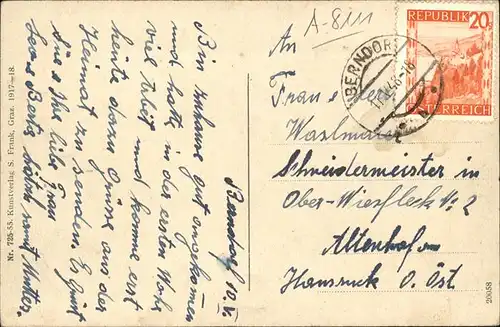 A-8111
REPUBLIK 20
ÖSTERREICH
BERNDORF
An
Frau u. Herr
Schneidermeister in
Ober-Wiesfleck No 2
Altenhof am
Hausruck O. Öst
Berndorf 10. V.
Bin zuhause gut angekommen
und hatte in der ersten Woche
viel Arbeit und komme erst
heute dazu Grüsse aus der
Heimat zu senden. Es grüßt
Sie Ihr liebe Frau
samt Mutter.
Nr. 725-55. Kunstverlag S. Frank, Graz. 1917-18.
20058